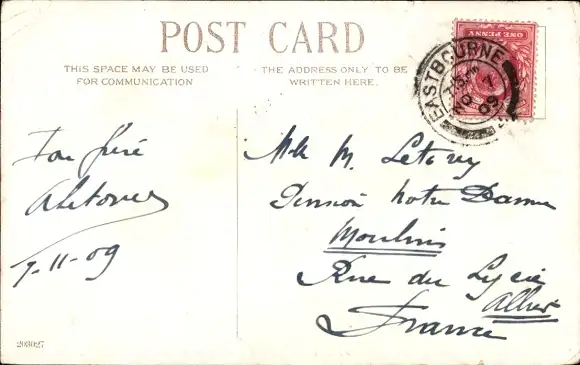 POST CARD
THIS SPACE MAY BE USED
FOR COMMUNICATION
THE ADDRESS ONLY TO BE
WRITTEN HERE.
ONE PENNY
EASTBOURNE
09
Ton frère
7-11-09
Mlle M. Letovey
Pension Notre Dame
Moulins
Rue du Lycée
Allier
France
203027